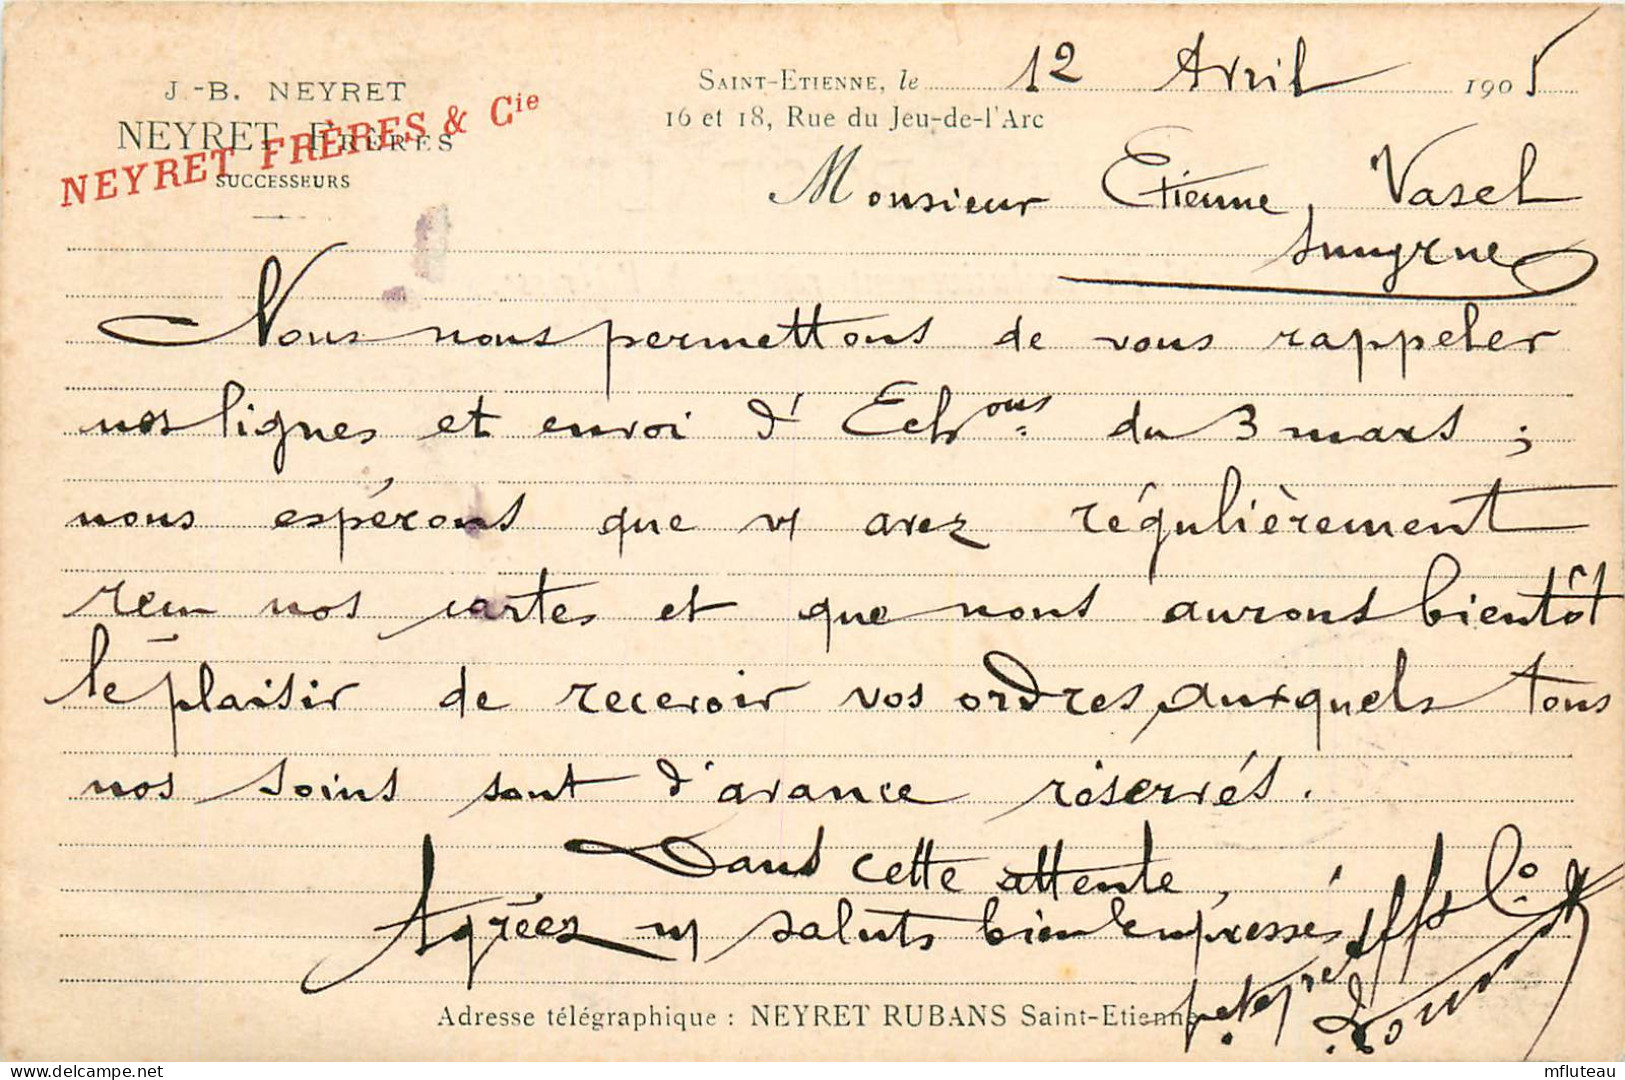 J.-B. NEYRET
NEYRET FRÈRES
SUCCESSEURS
NEYRET FRÈRES & Cie
SAINT-ETIENNE, le 12 Avril 1905
16 et 18, Rue du Jeu-de-l'Arc
Monsieur Etienne, Vasel
Smyrne
Nous nous permettons de vous rappeler
nos lignes et envoi d' Echons du 3 mars ;
nous espérons que vs avez régulièrement
reçu nos cartes et que nous aurons bientôt
le plaisir de recevoir vos ordres, auxquels tous
nos soins sont d'avance réservés.
Dans cette attente,
Agréez ns saluts bien empressés
Adresse télégraphique : NEYRET RUBANS Saint-Etienne
mfluteau